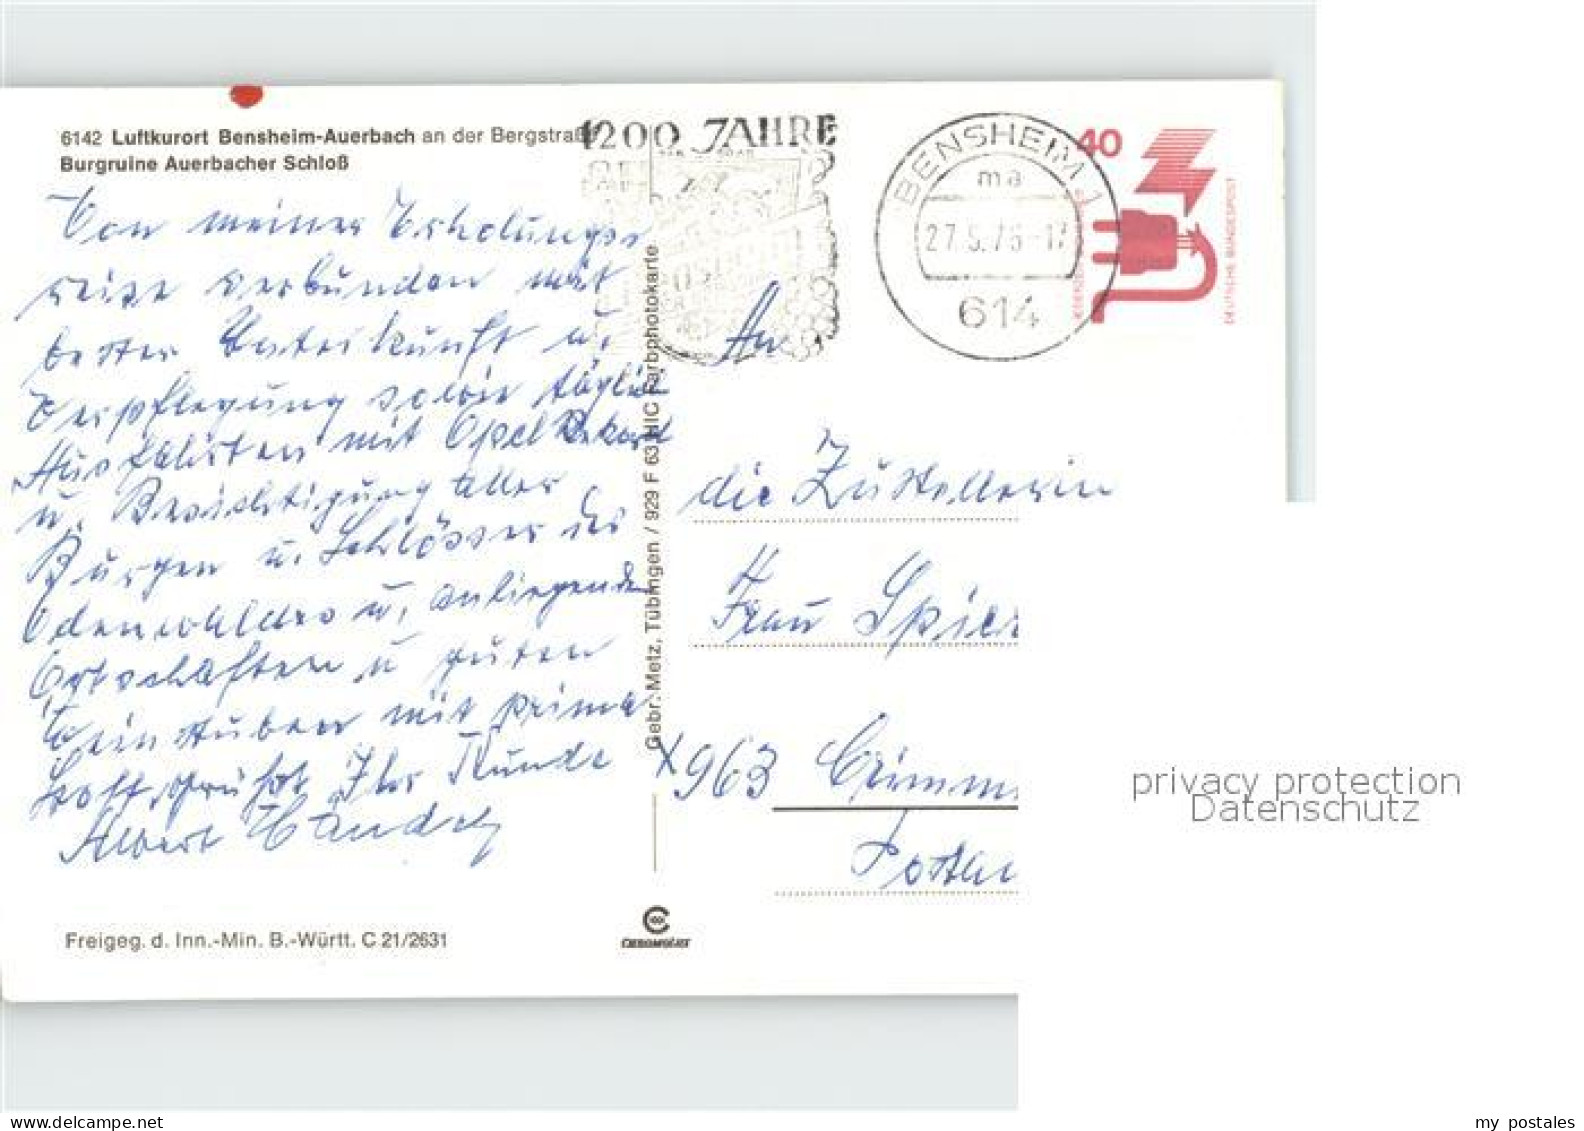 6142 Luftkurort Bensheim-Auerbach an der Bergstraße
Burgruine Auerbacher Schloß
1200 JAHRE
BENSHEIM 1
ma
27.5.76-17
614
40
DEUTSCHE BUNDESPOST
Von meiner Erholungs-
reise verbunden mit
bester Unterkunft u.
Verpflegung sowie täglich
Ausfahrten mit Opel Rekord
u. Besichtigung aller
Burgen u. Schlösser des
Odenwaldes u. anliegenden
Ortschaften u guten
Weinstuben mit prima
Stoff, grüßt Ihr Kunde
Albert
Gebr. Metz, Tübingen / 929 F 63 HIC Farbphotokarte
An
die Zustellerin
Frau Spier
x 963 Crimm
Postam
Freigeg. d. Inn.-Min. B.-Württ. C 21/2631
CHROMOLUX
privacy protection
Datenschutz
my postales